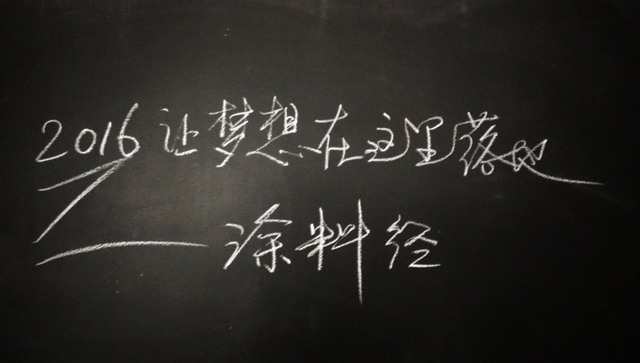 2016让梦想在这里落地
——涂料经